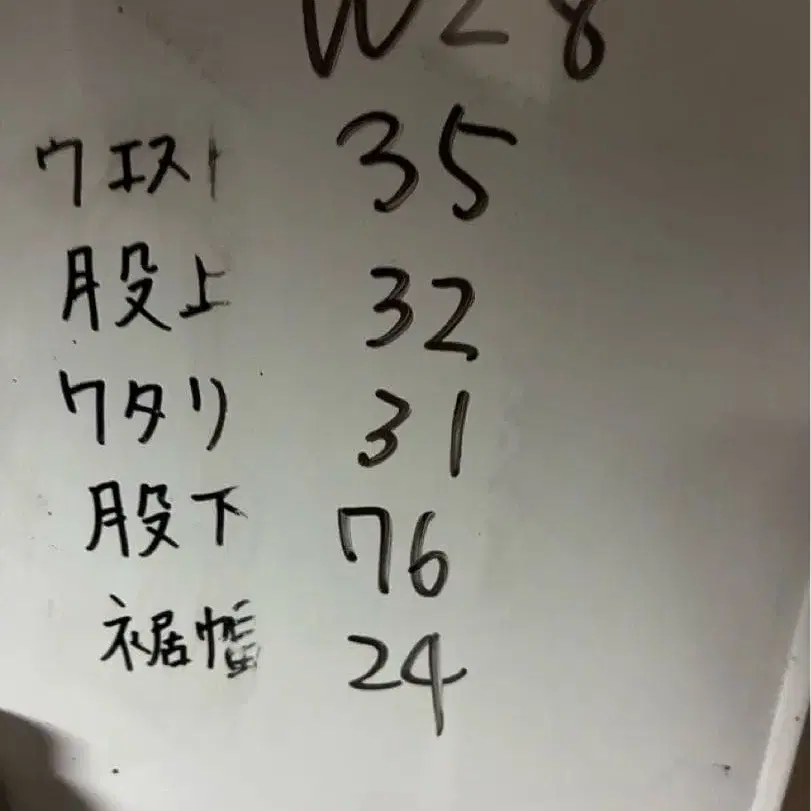 W28
ウエスト 35
股上 32
ワタリ 31
股下 76
裾幅 24